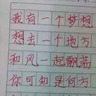 我有一个梦想
想去一个地方
和风一起飘荡
你可知是何方